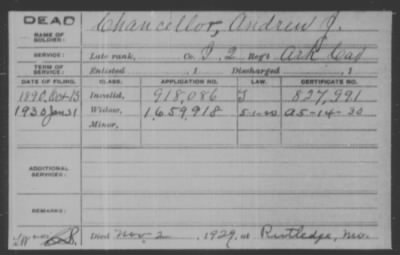 DEAD
NAME OF SOLDIER: Chancellor, Andrew J.
SERVICE: Late rank, Co. I, 2 Reg't Ark Cav
TERM OF SERVICE: Enlisted , 1 Discharged , 1
DATE OF FILING. CLASS. APPLICATION NO. LAW. CERTIFICATE NO.
1890, Oct 13 Invalid, 918,086 J 827,991
1930 Jan 31 Widow, 1,659,918 5-1-20 A5-14-30
Minor,
ADDITIONAL SERVICES:
REMARKS:
Died Nov 2, 1929, at Rutledge, Mo.